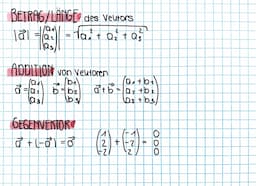 BETRAG/LÄNGE des Vektors
|a⃗| = |(a₁ a₂ a₃)| = √a₁² + a₂² + a₃²
ADDITION von Vektoren
a⃗ = (a₁ a₂ a₃) b⃗ = (b₁ b₂ b₃) a⃗+b⃗ = (a₁+b₁ a₂+b₂ a₃+b₃)
GEGENVEKTOR
a⃗ + (-a⃗) = o⃗ (1 2 -2) + (-1 -2 2) = 0 0 0